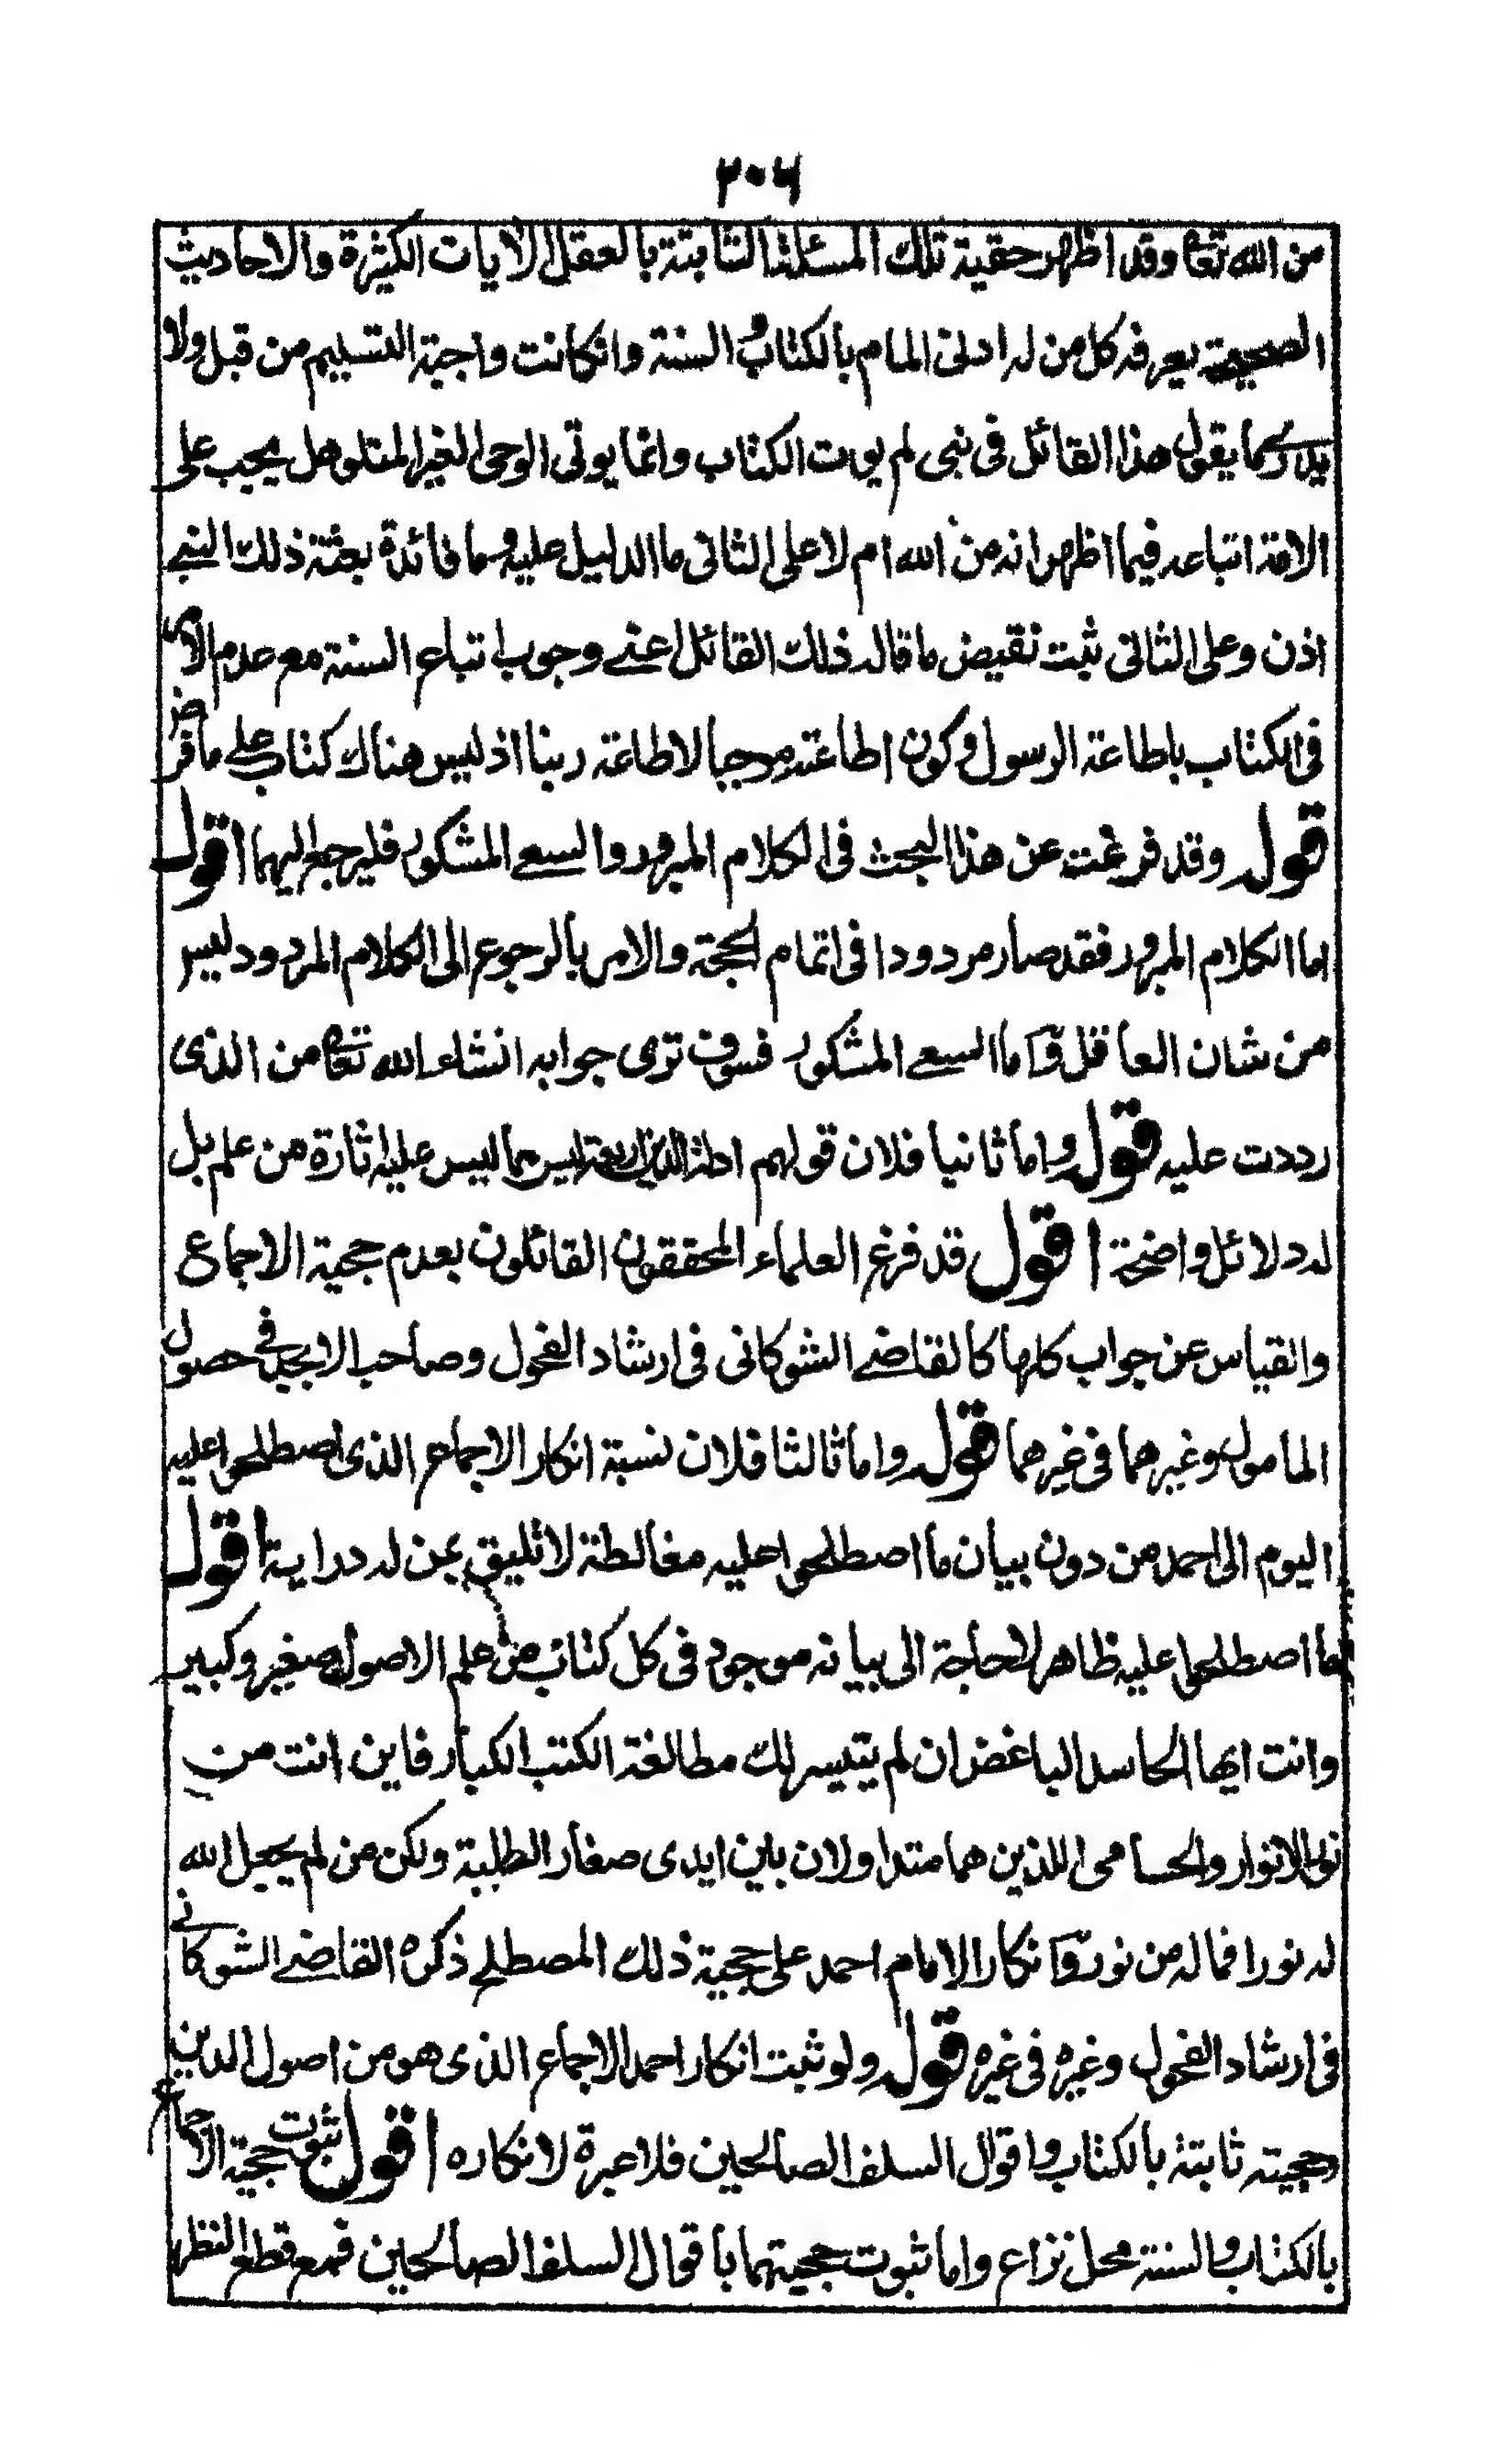 ٢٠٦
من الله تعا وقد اظهر حقية تلك المسئلة الثابتة بالعقل الايات الكثيرة والاحاديث
الصحيحة يعرفه كل من له ادنى المام بالكتاب والسنة وانكانت واجبة التسليم من قبل ولا
يدرى ما يقول هذا القائل فى نبى لم يوت الكتاب وانما يوتى الوحى الغير المتلو هل يجب على
الامة اتباعه فيما اظهر انه من الله ام لا على الثانى ما الدليل عليه وما فائدة بعثة ذلك النبى
اذن وعلى الثانى ثبت نقيض ما قاله ذلك القائل اعنے وجوب اتباع السنة مع عدم الامر
فى الكتاب باطاعة الرسول وكون اطاعته موجبا لاطاعة ربنا اذ ليس هناك كتاب علے ما فرض
قوله وقد فرغت عن هذا البحث فى الكلام المبرور والسعے المشكور فليرجع اليهما اقول
اما الكلام المبرور فقد صار مردودا فى اتمام الحجة والامر بالرجوع الى الكلام المردود ليس
من شان العاقل واما السعے المشكور فسوف ترى جوابه انشاء الله تعا من الذى
رددت عليه قوله واما ثانيا فلان قولهم ادلة الدين اربعة ليس مما ليس عليه اثارة من علم بل
له دلائل واضحة اقول قد فرغ العلماء المحققون القائلون بعدم حجية الاجماع
والقياس عن جواب كلها كالقاضے الشوكانى فى ارشاد الفحول وصاحب الابجد فى حصول
المامول وغيرهما فى غيرهما قوله واما ثالثا فلان نسبة انكار الاجماع الذى اصطلحوا عليه
اليوم الى احمد من دون بيان ما اصطلحوا عليه مغالطة لا تليق بمن له دراية اقول
ما اصطلحوا عليه ظاهر لا حاجة الى بيانه موجود فى كل كتاب من علم الاصول صغير وكبير
وانت ايها الحاسد الباغض ان لم يتيسر لك مطالعة الكتب الكبار فاين انت من
نور الانوار والحسامى اللذين هما متداولان بين ايدى صغار الطلبة ولكن من لم يجعل الله
له نورا فما له من نور وانكار الامام احمد على حجية ذلك المصطلح ذكره القاضے الشوكانى
فى ارشاد الفحول وغيره فى غيره قوله ولو ثبت انكار احمد الاجماع الذى هو من اصول الدين
وحجيته ثابتة بالكتاب واقوال السلف الصالحين فلا عبرة لانكاره اقول ثبوت حجية الاجماع
بالكتاب والسنة محل نزاع واما ثبوت حجيتهما باقوال السلف الصالحين فمع قطع النظر